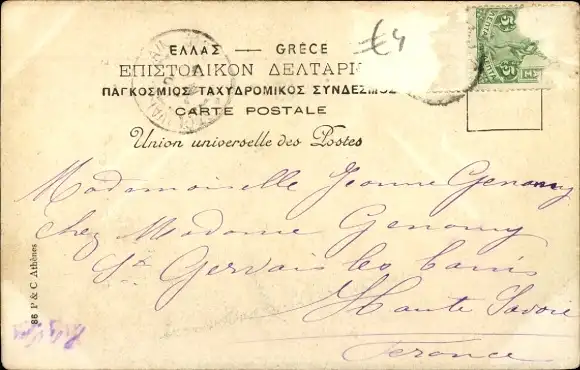 ΕΛΛΑΣ — GRÈCE
ΕΠΙΣΤΟΛΙΚΟΝ ΔΕΛΤΑΡΙ
ΠΑΓΚΟΣΜΙΟΣ ΤΑΧΥΔΡΟΜΙΚΟΣ ΣΥΝΔΕΣΜΟΣ
CARTE POSTALE
Union universelle des Postes
£4
5 5
Mademoiselle Jeanne Genamy
Chez Madame Genamy
St Gervais les bains
Haute Savoie
France
88 P & C Athènes